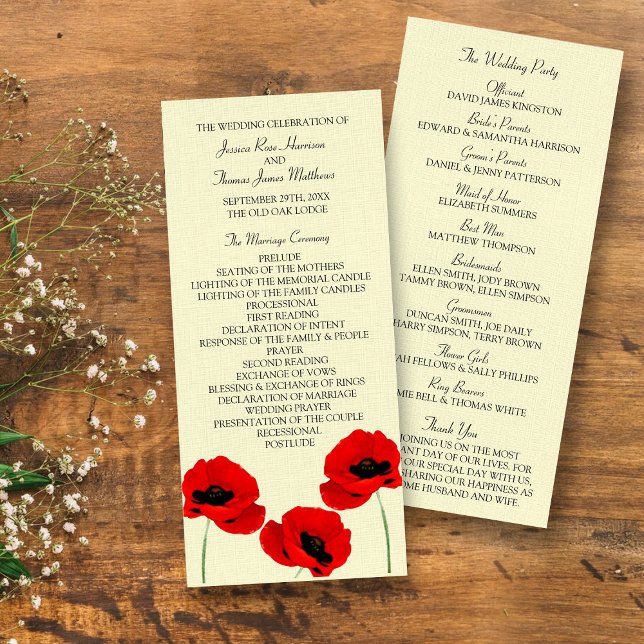 THE WEDDING CELEBRATION OF
Jessica Rose Harrison
AND
Thomas James Matthews
SEPTEMBER 29TH, 20XX
THE OLD OAK LODGE
The Marriage Ceremony
PRELUDE
SEATING OF THE MOTHERS
LIGHTING OF THE MEMORIAL CANDLE
LIGHTING OF THE FAMILY CANDLES
PROCESSIONAL
FIRST READING
DECLARATION OF INTENT
RESPONSE OF THE FAMILY & PEOPLE
PRAYER
SECOND READING
EXCHANGE OF VOWS
BLESSING & EXCHANGE OF RINGS
DECLARATION OF MARRIAGE
WEDDING PRAYER
PRESENTATION OF THE COUPLE
RECESSIONAL
POSTLUDE
The Wedding Party
Officiant
DAVID JAMES KINGSTON
Bride's Parents
EDWARD & SAMANTHA HARRISON
Groom's Parents
DANIEL & JENNY PATTERSON
Maid of Honor
ELIZABETH SUMMERS
Best Man
MATTHEW THOMPSON
Bridesmaids
ELLEN SMITH, JODY BROWN
TAMMY BROWN, ELLEN SIMPSON
Groomsmen
DUNCAN SMITH, JOE DAILY
HARRY SIMPSON, TERRY BROWN
Flower Girls
FELLOWS & SALLY PHILLIPS
Ring Bearers
BELL & THOMAS WHITE
Thank You
JOINING US ON THE MOST
DAY OF OUR LIVES. FOR
OUR SPECIAL DAY WITH US,
SHARING OUR HAPPINESS AS
HUSBAND AND WIFE.